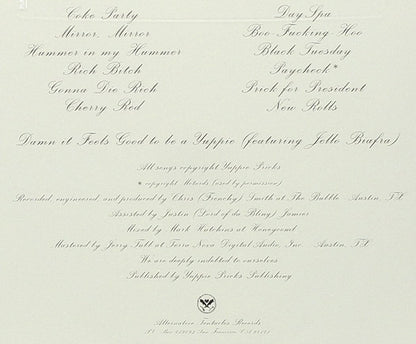 Coke Party
Mirror, Mirror
Hummer in my Hummer
Rich Bitch
Gonna Die Rich
Cherry Red
Day Spa
Boo-Fucking-Hoo
Black Tuesday
Paycheck*
Prick for President
New Rolls
Damn it Feels Good to be a Yuppie (featuring Jello Biafra)
All songs copyright Yuppie Pricks
* copyright Motards (used by permission)
Recorded, engineered, and produced by Chris (Frenchy) Smith at The Bubble Austin, TX
Assisted by Justin (Lord of da Bling) Janier
Mixed by Mark Hutchins at Honeycomb
Mastered by Jerry Tubb at Terra Nova Digital Audio, Inc. Austin, TX
We are deeply indebted to ourselves
Published by Yuppie Pricks Publishing
Alternative Tentacles Records
San Francisco, CA